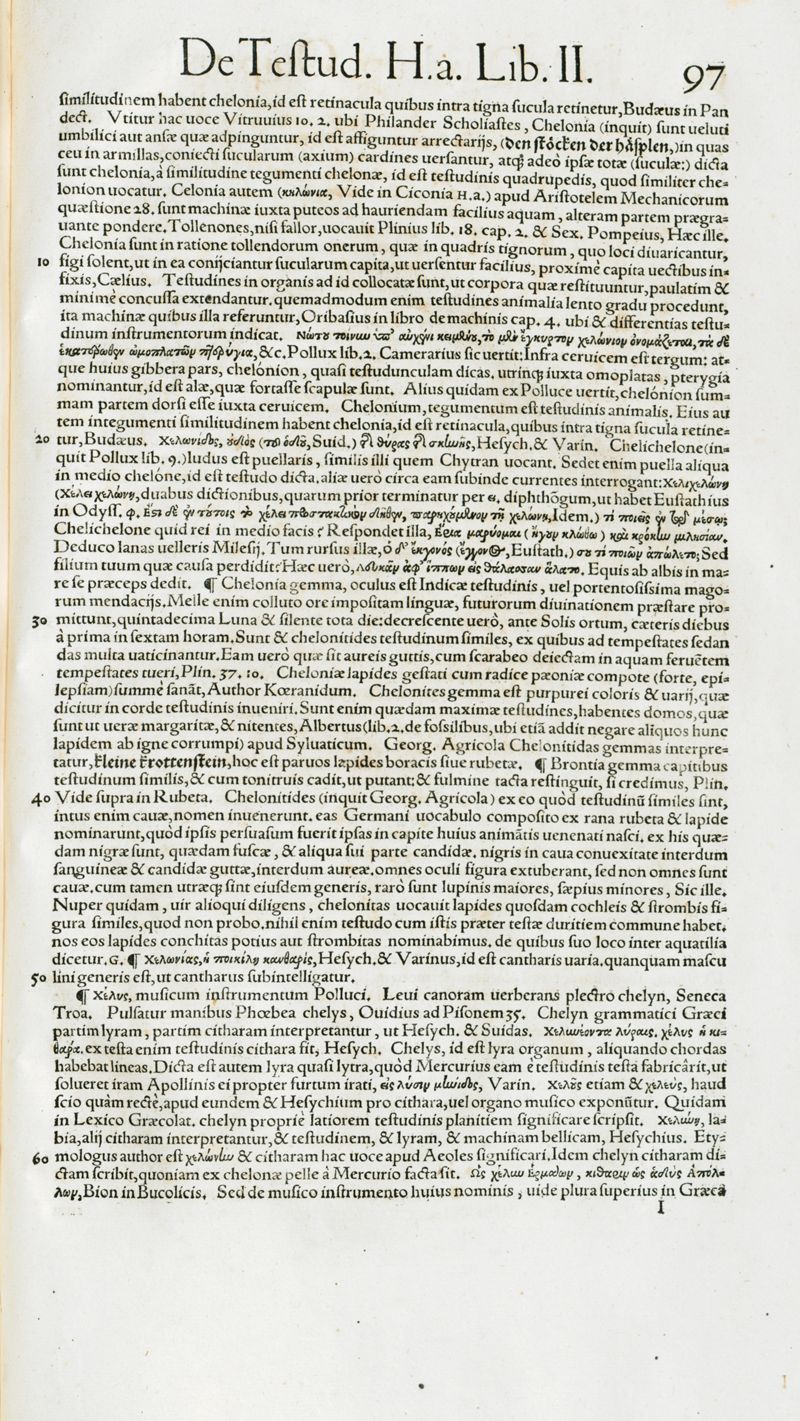 De Teſtud. H.a. Lib. II. 97
ſimilitudinem habent chelonia, id eſt retinacula quibus intra tigna ſucula retinetur, Budæus in Pan
dect. Vtitur hac uoce Vitruuius 10. 2. ubi Philander Scholiaſtes, Chelonia (inquit) ſunt ueluti
umbilici aut anſæ quæ adpinguntur, id eſt affiguntur arrectarijs, (den ſtöcken der häſplen,) in quas
ceu in armillas, coniecti ſucularum (axium) cardines uerſantur, atq; adeò ipſæ totæ (ſuculæ:) dicta
ſunt chelonia, à ſimilitudine tegumenti chelonæ, id eſt teſtudinis quadrupedis, quod ſimiliter che-
lonion uocatur. Celonia autem (κηλώνια, Vide in Ciconia H.a.) apud Ariſtotelem Mechanicorum
quæſtione 28. ſunt machinæ iuxta puteos ad hauriendam facilius aquam, alteram partem prægra-
uante pondere. Tollenones, niſi fallor, uocauit Plinius lib. 18. cap. 2. & Sex. Pompeius, Hæc ille.
Chelonia ſunt in ratione tollendorum onerum, quæ in quadris tignorum, quo loci diuaricantur,
10 figi ſolent, ut in ea conijciantur ſucularum capita, ut uerſentur facilius, proximè capita uectibus in-
fixis, Cælius. Teſtudines in organis ad id collocatæ ſunt, ut corpora quæ reſtituuntur, paulatim &
minimè concuſſa extendantur. quemadmodum enim teſtudines animalia lento gradu procedunt,
ita machinæ quibus illa referuntur, Oribaſius in libro de machinis cap. 4. ubi & differentias teſtu-
dinum inſtrumentorum indicat. Νώτου τοίνυν ὑπ' αὐχένι κειμένου, τὸ μὲν ἔγκυρτον χελώνιον ὀνομάζεται, τὰ δὲ
ἑκατέρωθεν ὠμοπλατῶν πτερύγια, &c. Pollux lib. 2. Camerarius ſic uertit: Infra ceruicem eſt tergum: at-
que huius gibbera pars, chelónion, quaſi teſtudunculam dicas. utrinq; iuxta omoplatas, pterygia
nominantur, id eſt alæ, quæ fortaſſe ſcapulæ ſunt. Alius quidam ex Polluce uertit, chelónion ſum-
mam partem dorſi eſſe iuxta ceruicem. Chelonium, tegumentum eſt teſtudinis animalis. Eius au
tem integumenti ſimilitudinem habent chelonia, id eſt retinacula, quibus intra tigna ſucula retine-
20 tur, Budæus. Χελωνίδος, ὁδός (τοῦ ὁδοῦ, Suid.) τῆς θύρας τῆς σκηνῆς, Heſych. & Varin. Chelichelone (in-
quit Pollux lib. 9.) ludus eſt puellaris, ſimilis illi quem Chytran uocant. Sedet enim puella aliqua
in medio chelóne, id eſt teſtudo dicta. aliæ uerò circa eam ſubinde currentes interrogant: Χελιχελώνη
(Χέλει χελώνη, duabus dictionibus, quarum prior terminatur per ει. diphthõgum, ut habet Euſtathius
in Odyſſ. φ. Ἔστι δὲ ἐν τούτοις τὸ χέλει προστακτικὸν δῆθεν, παρηχημένον τῇ χελώνῃ, Idem.) τί ποιεῖς ἐν τῷ μέσῳ;
Chelichelone quid rei in medio facis? Reſpondet illa, Ἔρια μαρύομαι (ἤγουν κλώθω) καὶ κρόκην μιλησίαν.
Deduco lanas uelleris Mileſij. Tum rurſus illæ, ὁ δ' ἔκγονός (ἔγγονος, Euſtath.) σου τί ποιῶν ἀπώλετο; Sed
filium tuum quæ cauſa perdidit? Hæc uerò, Λευκᾶν ἀφ' ἵππων εἰς θάλασσαν ἅλατο. Equis ab albis in ma-
re ſe præceps dedit. ¶ Chelonia gemma, oculus eſt Indicæ teſtudinis, uel portentoſiſsima mago-
rum mendacijs. Melle enim colluto ore impoſitam linguæ, futurorum diuinationem præſtare pro-
30 mittunt, quintadecima Luna & ſilente tota die: decreſcente uerò, ante Solis ortum, cæteris diebus
à prima in ſextam horam. Sunt & chelonitides teſtudinum ſimiles, ex quibus ad tempeſtates ſedan
das multa uaticinantur. Eam uerò quæ ſit aureis guttis, cum ſcarabeo deiectam in aquam feruẽtem
tempeſtates tueri, Plin. 37. 10. Cheloniæ lapides geſtati cum radice pæoniæ compote (forte, epi-
lepſiam) ſummè ſanãt, Author Kœranidum. Chelonites gemma eſt purpurei coloris & uarij, quæ
dicitur in corde teſtudinis inueniri. Sunt enim quædam maximæ teſtudines, habentes domos, quæ
ſunt ut ueræ margaritæ, & nitentes, Albertus (lib. 2. de foſsilibus, ubi etiã addit negare aliquos hunc
lapidem ab igne corrumpi) apud Syluaticum. Georg. Agricola Chelonitidas gemmas interpre-
tatur, kleine krottenſtein, hoc eſt paruos lapides boracis ſiue rubetæ. ¶ Brontia gemma capitibus
teſtudinum ſimilis, & cum tonitruis cadit, ut putant: & fulmine tacta reſtinguit, ſi credimus, Plin.
40 Vide ſupra in Rubeta. Chelonitides (inquit Georg. Agricola) ex eo quòd teſtudinũ ſimiles ſint,
intus enim cauæ, nomen inuenerunt. eas Germani uocabulo compoſito ex rana rubeta & lapide
nominarunt, quòd ipſis perſuaſum fuerit ipſas in capite huius animãtis uenenati naſci. ex his quæ-
dam nigræ ſunt, quædam fuſcæ, & aliqua ſui parte candidæ. nigris in caua conuexitate interdum
ſanguineæ & candidæ guttæ, interdum aureæ. omnes oculi figura extuberant, ſed non omnes ſunt
cauæ. cum tamen utræq; ſint eiuſdem generis, rarò ſunt lupinis maiores, ſæpius minores, Sic ille.
Nuper quidam, uir alioqui diligens, chelonitas uocauit lapides quoſdam cochleis & ſtrombis fi-
gura ſimiles, quod non probo. nihil enim teſtudo cum iſtis præter teſtæ duritiem commune habet.
nos eos lapides conchitas potius aut ſtrombitas nominabimus. de quibus ſuo loco inter aquatilia
dicetur. G. ¶ Χελωνίας, ἡ ποικίλη κανθαρίς, Heſych. & Varinus, id eſt cantharis uaria. quanquam maſcu
50 lini generis eſt, ut cantharus ſubintelligatur.
¶ Χέλυς, muſicum inſtrumentum Polluci. Leui canoram uerberans plectro chelyn, Seneca
Troa. Pulſatur manibus Phœbea chelys, Ouidius ad Piſonem 35. Chelyn grammatici Græci
partim lyram, partim citharam interpretantur, ut Heſych. & Suidas. Χελωνέοντα λύραις. χέλυς ἡ κι-
θάρα. ex teſta enim teſtudinis cithara fit, Heſych. Chelys, id eſt lyra organum, aliquando chordas
habebat lineas. Dicta eſt autem lyra quaſi lytra, quòd Mercurius eam è teſtudinis teſta fabricârit, ut
ſolueret iram Apollinis ei propter furtum irati, εἰς λύσιν μήνιδος, Varin. Χελὺς etiam & χελεύς, haud
ſcio quàm rectè, apud eundem & Heſychium pro cithara, uel organo muſico exponũtur. Quidam
in Lexico Græcolat. chelyn propriè latiorem teſtudinis planitiem ſignificare ſcripſit. Χελώνη, la-
bia, alij citharam interpretantur, & teſtudinem, & lyram, & machinam bellicam, Heſychius. Ety-
60 mologus author eſt χελώνην & citharam hac uoce apud Aeoles ſignificari. Idem chelyn citharam di-
ctam ſcribit, quoniam ex chelonæ pelle à Mercurio facta ſit. Ὡς χέλυν Ἑρμάων, κίθαριν ὡς ἁδὺς Ἀπόλ-
λων, Bion in Bucolicis. Sed de muſico inſtrumento huius nominis, uide plura ſuperius in Græca
I